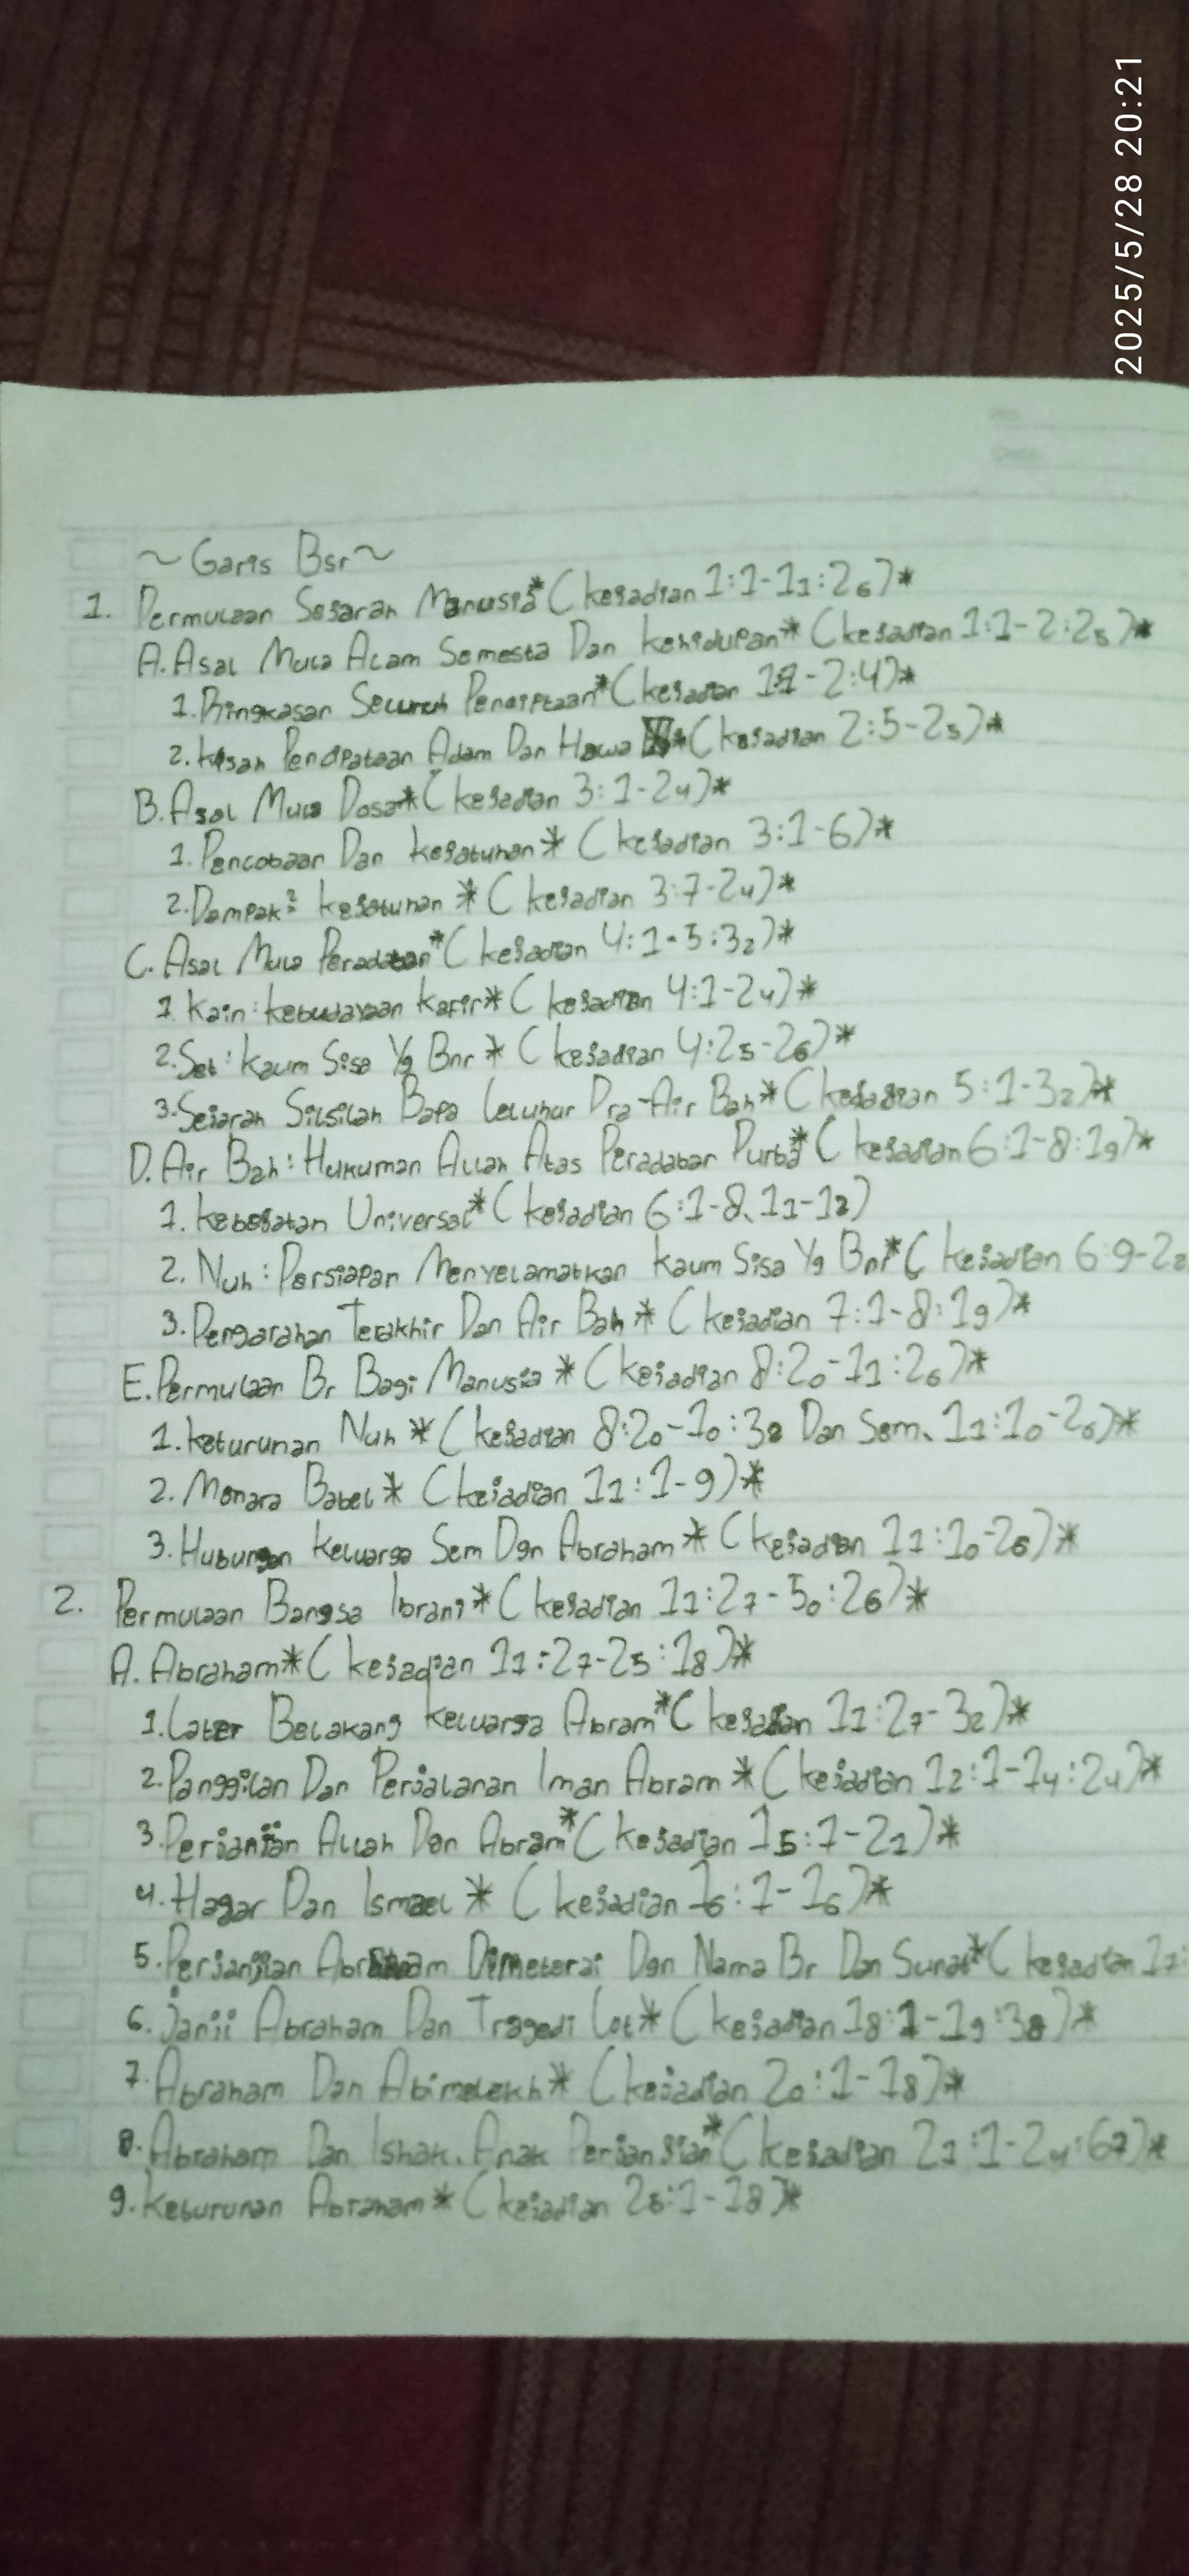 2025/5/28 20:21
~Garis Bsr~
1. Permulaan Sejarah Manusia*(kejadian 1:1-11:26)*
A. Asal Mula Alam Semesta Dan kehidupan*(kejadian 1:1-2:25)*
1. Ringkasan Seluruh Penciptaan*(kejadian 1:1-2:4)*
2. kisah Penciptaan Adam Dan Hawa *(kejadian 2:5-25)*
B. Asal Mula Dosa*(kejadian 3:1-24)*
1. Pencobaan Dan kejatuhan*(kejadian 3:1-6)*
2. Dampak² kejatuhan*(kejadian 3:7-24)*
C. Asal Mula Peradaban*(kejadian 4:1-5:32)*
1 Kain: kebudayaan kafir*(kejadian 4:1-24)*
2. Set: kaum Sisa Yg Bnr*(kejadian 4:25-26)*
3. Sejarah Silsilah Bapa leluhur Pra-Air Bah*(kejadian 5:1-32)*
D. Air Bah: Hukuman Allah Atas Peradaban Purba*(kejadian 6:1-8:19)*
1. kebejatan Universal*(kejadian 6:1-8, 11-12)
2. Nuh: Persiapan Menyelamatkan kaum Sisa Yg Bnr*(kejadian 6:9-22
3. Pengarahan Terakhir Dan Air Bah*(kejadian 7:1-8:19)*
E. Permulaan Br Bagi Manusia*(kejadian 8:20-11:26)*
1. keturunan Nuh*(kejadian 8:20-10:32 Dan Sem, 11:10-26)*
2. Menara Babel*(kejadian 11:1-9)*
3. Hubungan keluarga Sem Dgn Abraham*(kejadian 11:10-26)*
2. Permulaan Bangsa Ibrani*(kejadian 11:27-50:26)*
A. Abraham*(kejadian 11:27-25:18)*
1. Latar Belakang keluarga Abram*(kejadian 11:27-32)*
2. Panggilan Dan Perjalanan Iman Abram*(kejadian 12:1-14:24)*
3. Perjanjian Allah Dgn Abram*(kejadian 15:1-21)*
4. Hagar Dan Ismael*(kejadian 16:1-16)*
5. Perjanjian Abraham Dimeterai Dgn Nama Br Dan Sunat*(kejadian 17:
6. Janji Abraham Dan Tragedi Lot*(kejadian 18:1-19:38)*
7. Abraham Dan Abimelekh*(kejadian 20:1-18)*
8. Abraham Dan Ishak, Anak Perjanjian*(kejadian 21:1-24:67)*
9. keturunan Abraham*(kejadian 25:1-18)*